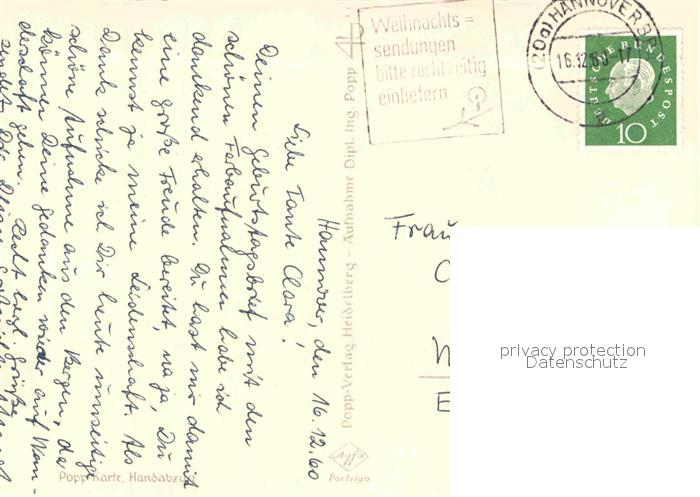 Weihnachts=
sendungen
bitte rechtzeitig
einliefern
(20a) HANNOVER
16.12.60-17
DEUTSCHE BUNDESPOST
10
Hannover, den 16.12.60
Liebe Tante Clara!
Deinen Geburtstagsbrief mit den
schönen Farbaufnahmen habe ich
dankend erhalten. Du hast mir damit
eine große Freude bereitet, na ja, Du
kennst ja meine Leidenschaft. Als
Dank schicke ich Dir heute umseitige
schöne Aufnahme aus den Bergen, da
können Deine Gedanken wieder auf Wan-
derschaft gehen. Recht herzl. Grüße
sendet Dir
Popp-Verlag Heidelberg — Aufnahme Dipl. Ing. Popp
Popp-Karte, Handabzug
Agfa
Portriga
Frau
privacy protection
Datenschutz